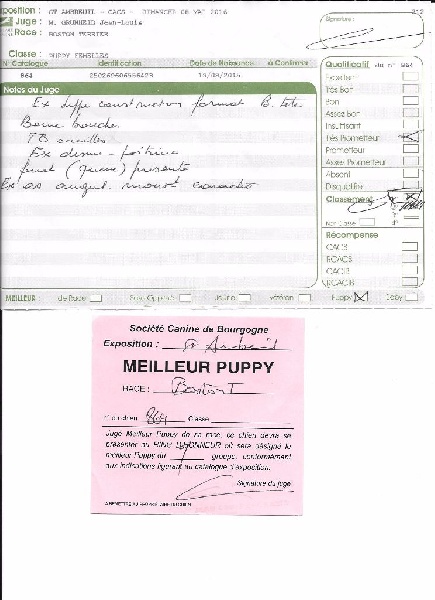 Exposition : ST AMBREUIL - CACS - DIMANCHE 08 MAI 2016
Juge : M. GRUNHEID Jean-Louis
Race : BOSTON TERRIER
Classe : PUPPY FEMELLES
Signature :
N° Catalogue Identification Date de Naissance à Confirmer
864
Notes du Juge
Ex type construction format B. tete
Bonne bouche
TB oreilles
Ex dessus - poitrine
(Jeune) presente
Ex os angul. mouvt caractere
Qualificatif du n° 864
Excellent
Très Bon
Bon
Assez Bon
Insuffisant
Très Prometteur
Prometteur
Assez Prometteur
Absent
Disqualifié
Classement
Non Classé
Récompense
CACS
RCACS
CACIB
RCACIB
MEILLEUR : de Race Sexe Opposé Jeune Vétéran Puppy Baby
Société Canine de Bourgogne
Exposition : St Ambreuil
MEILLEUR PUPPY
RACE : Boston T
N° du chien 864 Classe
Juge Meilleur Puppy de sa race, ce chien devra se
présenter au RING D'HONNEUR où sera désigné le
meilleur Puppy du groupe, conformément
aux indications figurant au catalogue d'exposition.
Signature du juge